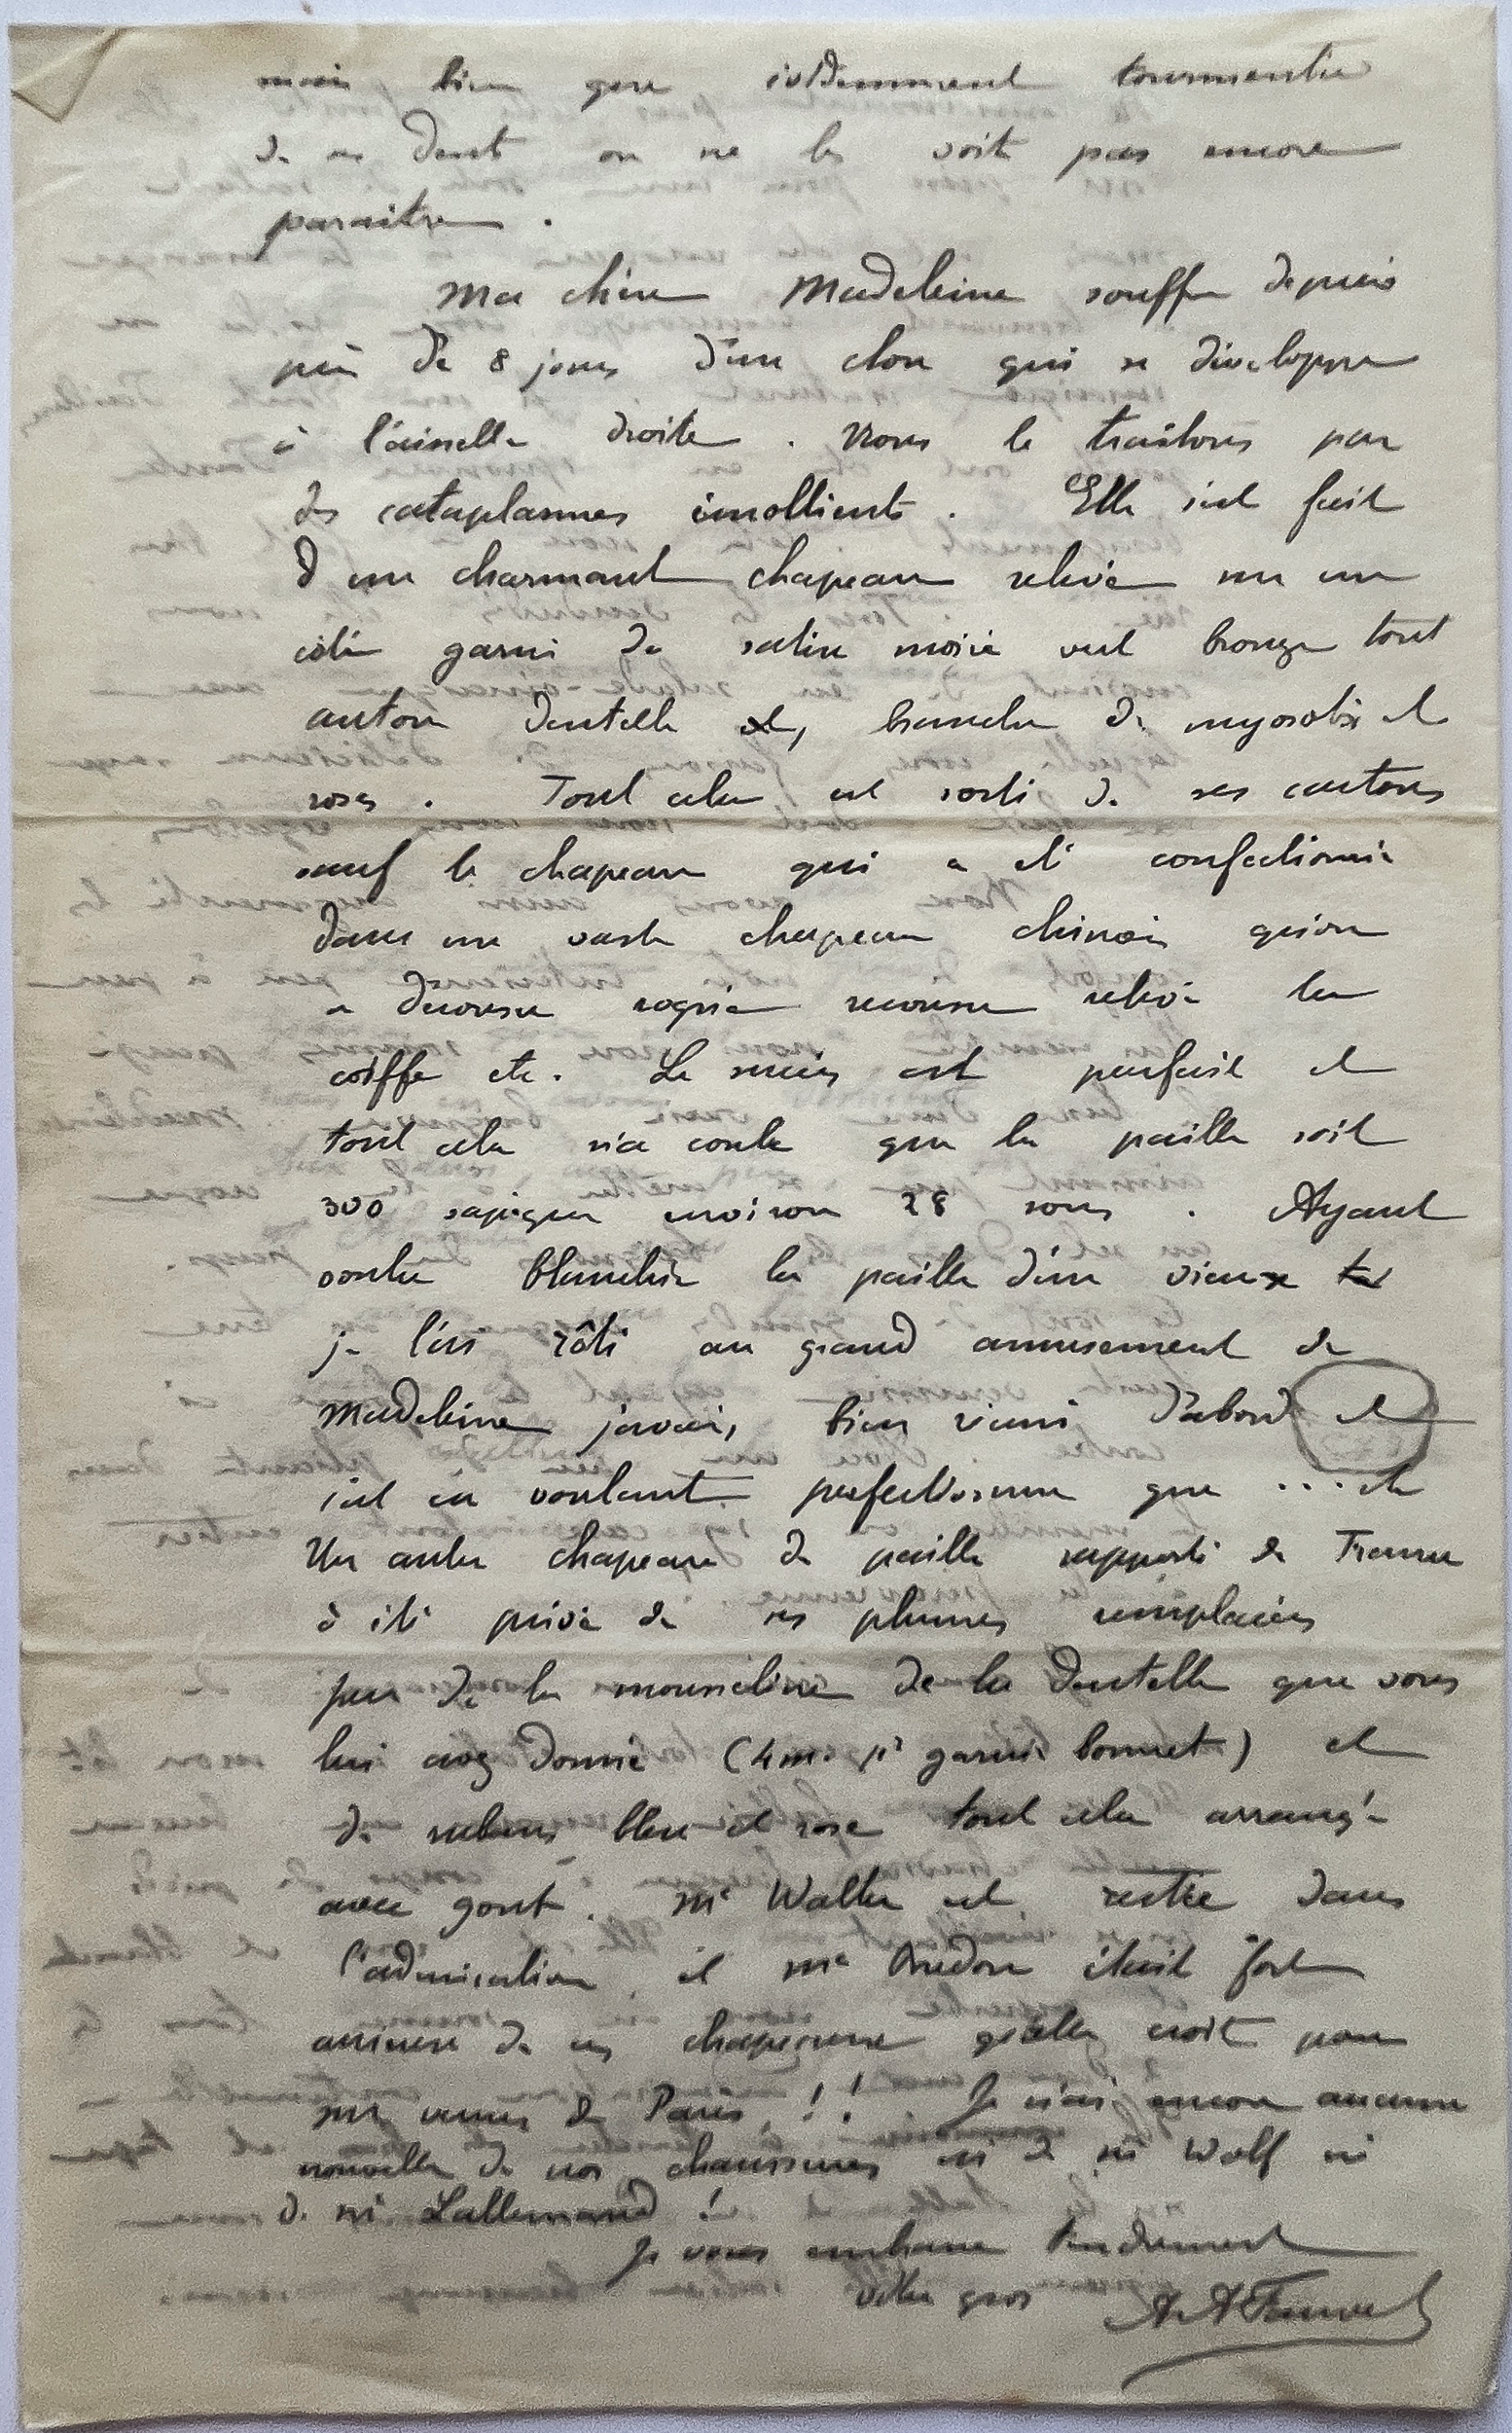 mais bien que évidemment tourmentée
de ses dents on ne les voit pas encore
paraitre .
Ma chère Madeleine souffre depuis
près de 8 jours d'un clou qui se développe
à l'aisselle droite . Nous le traitons par
des cataplasmes émollients . Elle s'est fait
d un charmant chapeau relevé sur un
côté garni de satin moiré vert bronze tout
autour dentelle et, branche de myosotis et
roses . Tout cela est sorti de ses cartons
sauf le chapeau qui a été confectionné
dans un vaste chapeau chinois qu'on
a décousu rogné recousu relevé la
coiffe etc . Le succès est parfait et
tout cela n'a coûté que la paille soit
300 sapèques environ 28 sous . Ayant
voulu blanchir la paille d'un vieux
je l'ai rôti au grand amusement de
Madeleine j'avais, bien réussi d'abord et
c'est en voulant perfectionner que ... etc
Un autre chapeau de paille rapporté de France
à été privé de ses plumes remplacées
par de la mousseline de la dentelle que vous
lui avez donné (4m. pr garnir bonnet) et
de rubans bleu et rose tout cela arrangé
avec gout . Me Walter est restée dans
l'admiration et Me Bredon était fort
envieuse de ces chapeaux qu'elle croit pour
sur venus de Paris !! Je n'ai encore aucune
nouvelle de nos chaussures ni de Mr Wolf ni
de Mr Lallemand !
Je vous embrasse tendrement
votre gros A. A. Fauvel